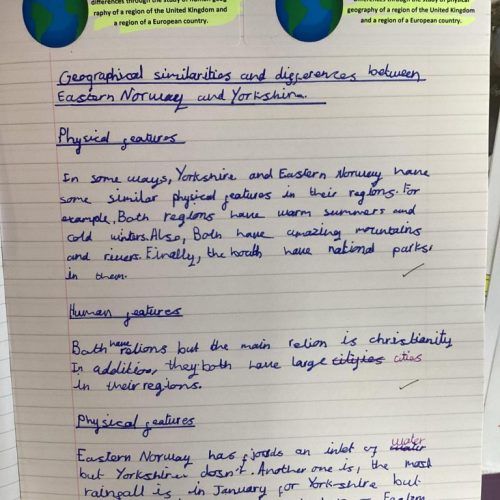 differences through the study of human geog
raphy of a region of the United Kingdom and
a region of a European country.
differences through the study of physical
geography of a region of the United Kingdom
and a region of a European country.
Geographical similarities and differences between
Eastern Norway and Yorkshire.
Physical features
In some ways, Yorkshire and Eastern Norway have
some similar physical features in their regions. For
example, Both regions have warm summers and
cold winters. Also, Both have amazing mountains
and rivers. Finally, the both have national parks
in them.
Human features
Both have relions but the main relion is christianity
In addition, they both have large cityies cities
in their regions.
Physical features
Eastern Norway has fjords an inlet of water
but Yorkshire doesn't. Another one is, the most
rainfall is in January for Yorkshire but